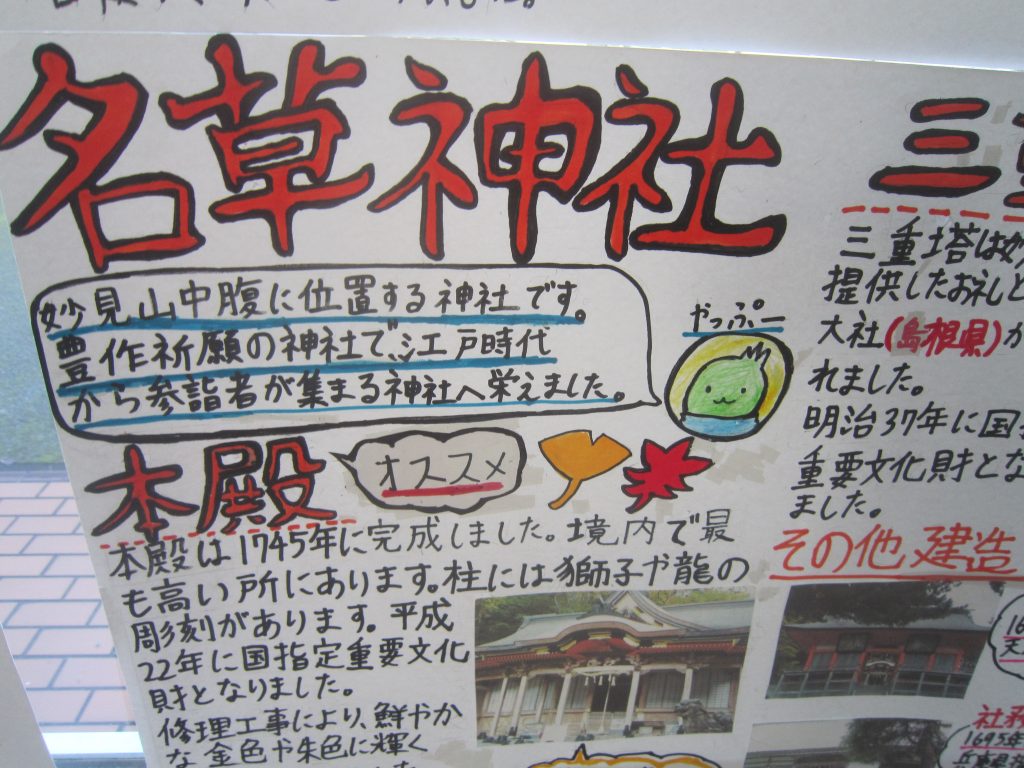 名草神社
妙見山中腹に位置する神社です。
豊作祈願の神社で、江戸時代
から参詣者が集まる神社へ栄えました。
やっぷー
本殿
オススメ
本殿は1745年に完成しました。境内で最
も高い所にあります。柱には獅子や龍の
彫刻があります。平成
22年に国指定重要文化
財となりました。
修理工事により、鮮やか
な金色や朱色に輝く
三重
三重塔は妙
提供したお礼と
大社(島根県)か
れました。
明治37年に国
重要文化財とな
ました。
その他建造
社務
1695年
兵庫県